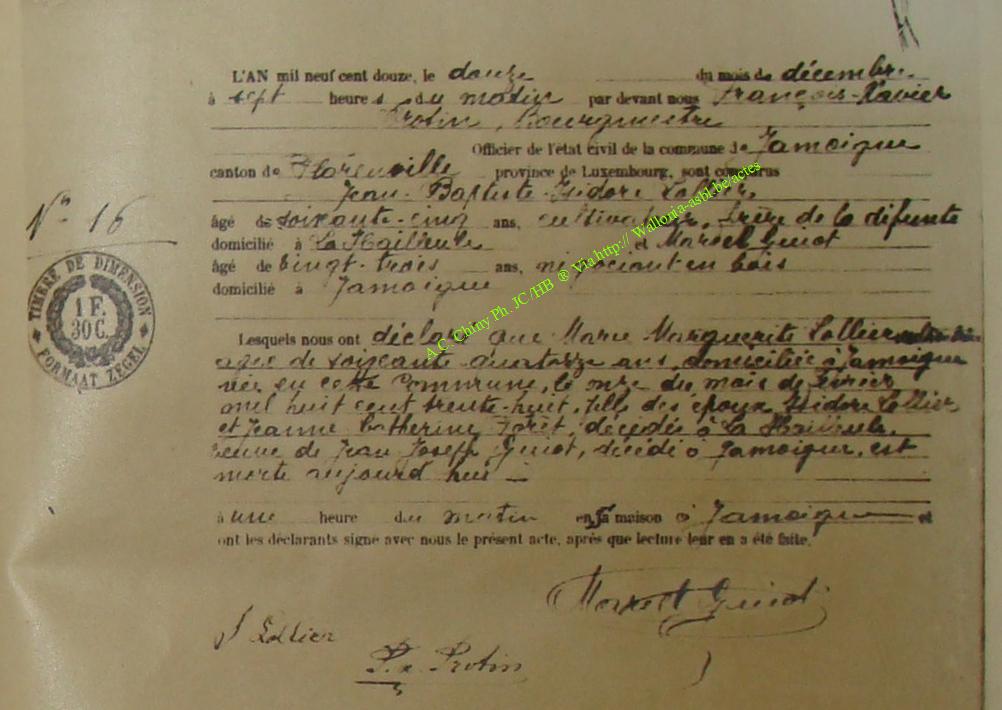 L'AN mil neuf cent douze, le douze du mois de décembre
à sept heures du matin par devant nous François-Xavier
Protin, Bourgmestre
Officier de l'état civil de la commune de Jamoigne
canton de Florenville province de Luxembourg, sont comparus
Jean Baptiste Isidore Lallier
âgé de soixante-cinq ans, cultivateur, frère de la défunte
domicilié à La Hailleule et Marcel Guiot
âgé de vingt-trois ans, négociant en bois
domicilié à Jamoigne
N° 16
TIMBRE DE DIMENSION
1 F.
30 C.
FORMAAT ZEGEL
Lesquels nous ont déclaré que Marie Marguerite Lallier
agée de soixante quatorze ans, domiciliée à Jamoigne
née en cette Commune, le onze du mois de février
mil huit cent trente-huit, fille des époux Isidore Lallier
et Jeanne Catherine Forêt, décédés à La Hailleule,
veuve de Jean Joseph Guiot, décédé à Jamoigne, est
morte aujourd'hui
à une heure du matin en sa maison à Jamoigne et
ont les déclarants signé avec nous le présent acte, après que lecture leur en a été faite.
Marcel Guiot
J Lallier
F. x Protin
A.C. Chiny Ph. JC/HB ® Via http:// Wallonia-asbl.be/actes